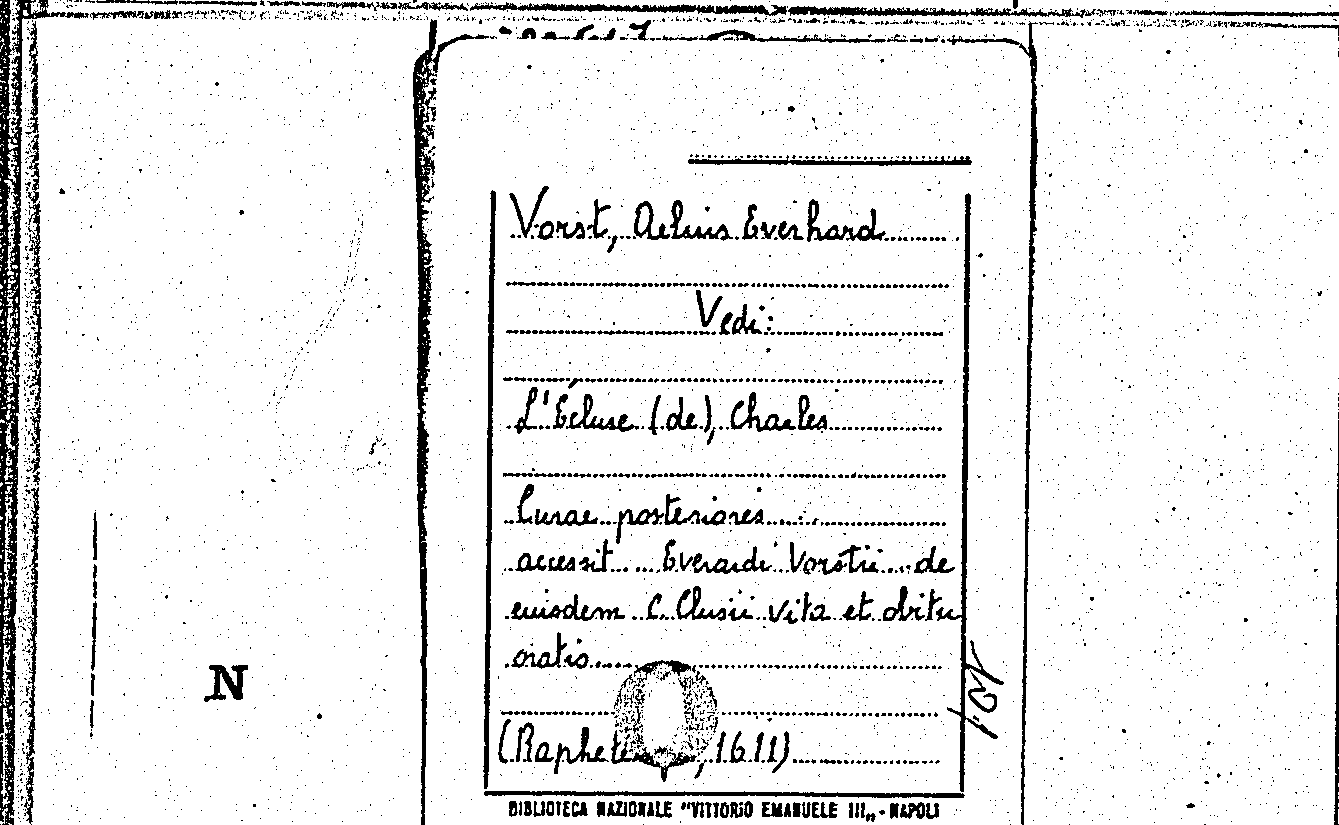 Vorst, Aelius Everhard
Vedi:
L'Écluse (de), Charles
Curae posteriores
accessit Everardi Vorstii de
eiusdem C. Clusii vita et obitu
oratio
(Raphele , 1611)
BIBLIOTECA NAZIONALE "VITTORIO EMANUELE III„ - NAPOLI
N